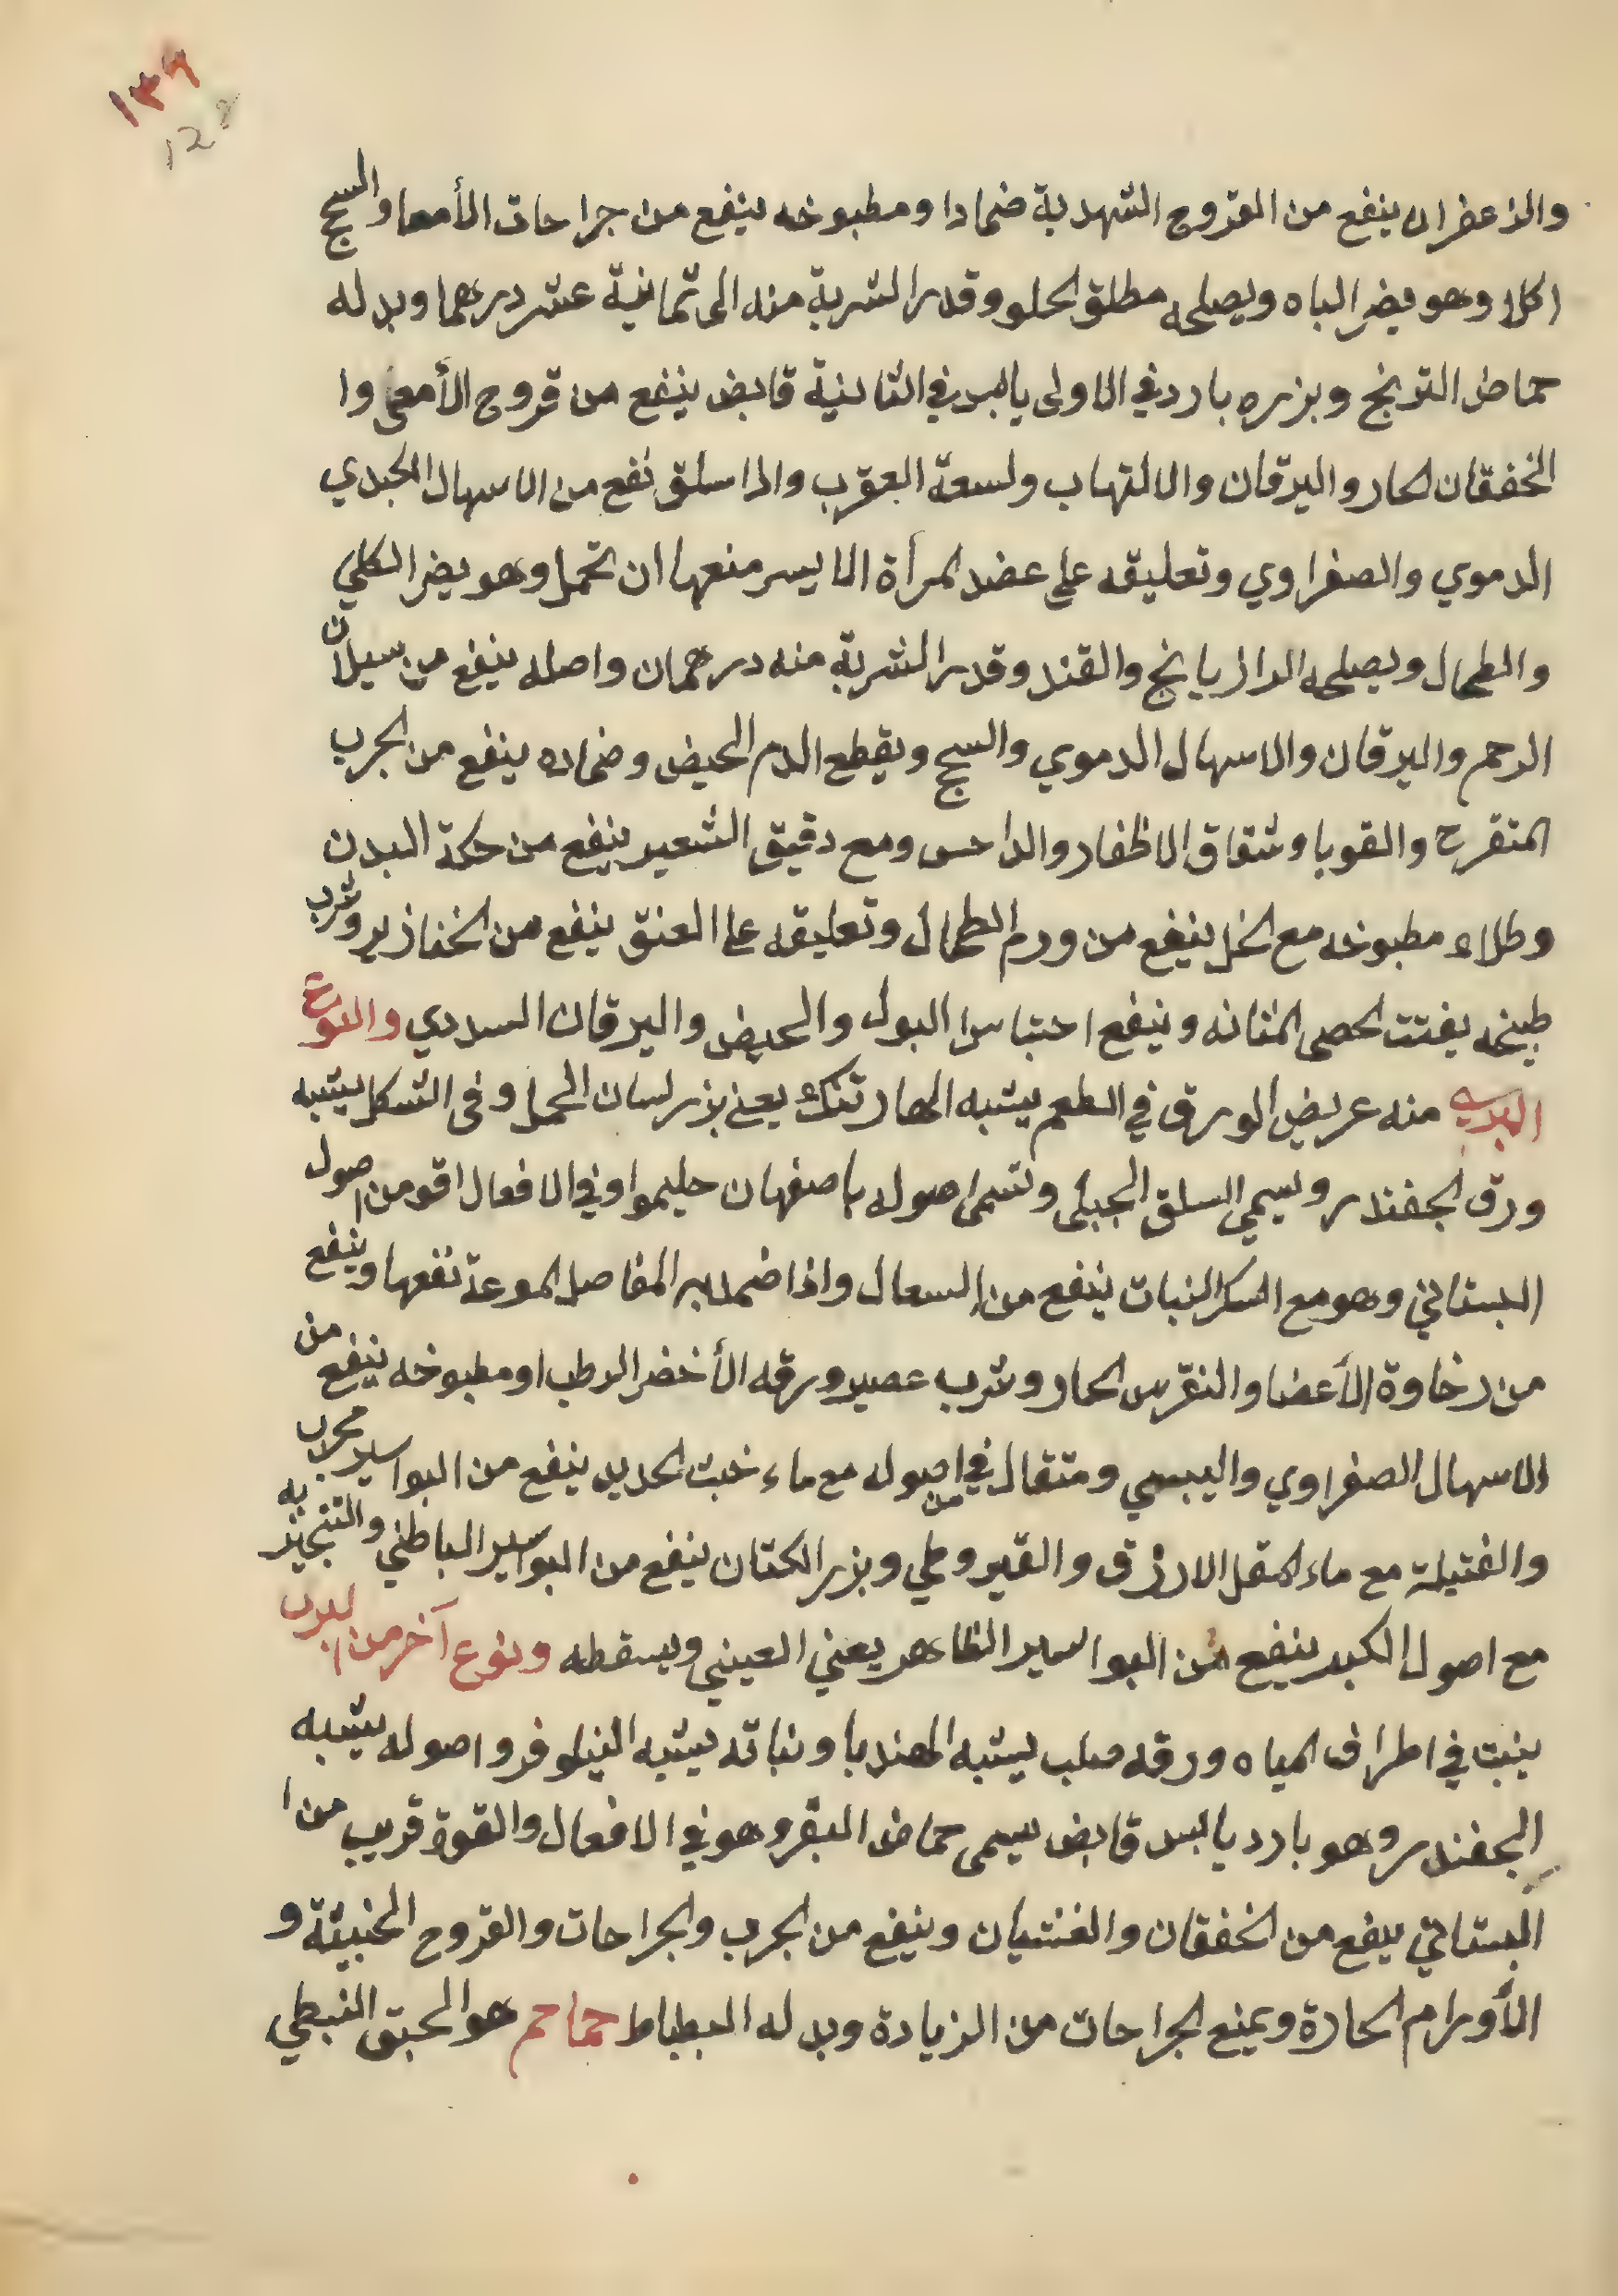 ١٣٩
128
والزعفران ينفع من القروح الشهدية ضمادا ومطبوخه ينفع من جراحات الأمعا والسحج
اكلا وهو يضر الباه ويصلحه مطلق الحلو وقدر الشربة منه الى ثمانية عشر درهما وبدله
حماض الترنج وبزره بارد في الاولى يابس في الثانية قابض ينفع من قروح الأمعى وا
الخفقان الحار واليرقان والالتهاب ولسعة العقرب واذا سلق نفع من الاسهال الكبدي
الدموي والصفراوي وتعليقه على عضد المرأة الايسر منعها ان تحمل وهو يضر الكلي
والطحال ويصلحه الرازيانج والقند وقدر الشربة منه درهمان واصله ينفع من سيلان
الرحم واليرقان والاسهال الدموي والسحج ويقطع الدم الحيض وضماده ينفع من الجرب
المتقرح والقوبا وشقاق الاظفار والداحس ومع دقيق الشعير ينفع من حكة البدن
وطلاء مطبوخه مع الخل ينفع من ورم الطحال وتعليقه على العنق ينفع من الخنازير وشرب
طبيخه يفتت الحصى المثانه وينفع احتباس البول والحيض واليرقان السددي والنوع
البري منه عريض الورق في الطعم يشبه البارتنك يعني بزر لسان الحمل وفى الشكل يشبه
ورق الجفندر ويسمي السلق الجبلى وتسمى اصوله باصفهان حليموا وفي الافعال اقو من اصول
البستاني وهو مع السكر النبات ينفع من السعال واذا ضمد به المفاصل الموعة نفعها وينفع
من رخاوة الأعضا والنقرس الحار وشرب عصير ورقه الأخضر الرطب او مطبوخه ينفع من
الاسهال الصفراوي واليبسي ومثقال في من اصوله مع ماء خبث الحديد ينفع من البواسير مجرب
والفتيلة مع ماء المقل الازرق والقيروطي وبزر الكتان ينفع من البواسير الباطني والتبخير به
مع اصول الكبر ينفع من البواسير الظاهر يعني العيني ويسقطه ونوع آخر من البري
ينبت في اطراف المياه ورقه صلب يشبه الهندبا ونباته يشبه النيلوفر واصوله يشبه
الجفندر وهو بارد يابس قابض يسمى حماض البقر وهو في الافعال والقوة قريب من ا
البستاني ينفع من الخفقان والغثيان وينفع من الجرب والجراحات والقروح الخبيثة و
الأورام الحارة ويمنع الجراحات من الزيادة وبدله البطباط حماحم هو الحبق النبطي